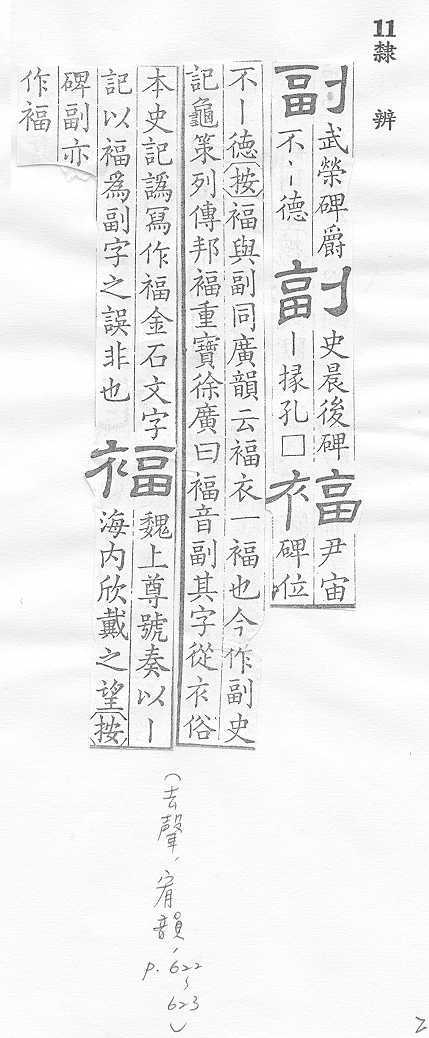 11 隸辨
副
武榮碑爵
不丶丨德
副
史晨後碑
丨掾孔□
褔
尹宙
碑位
不丨德按褔與副同廣韻云褔衣一褔也今作副史
記龜策列傳邦褔重寶徐廣曰褔音副其字從衣俗
本史記譌寫作福金石文字
記以褔爲副字之誤非也
褔
魏上尊號奏以丨
海内欣戴之望按
碑副亦
作褔
(去聲,宥韻,
p. 622
~
623
)
2